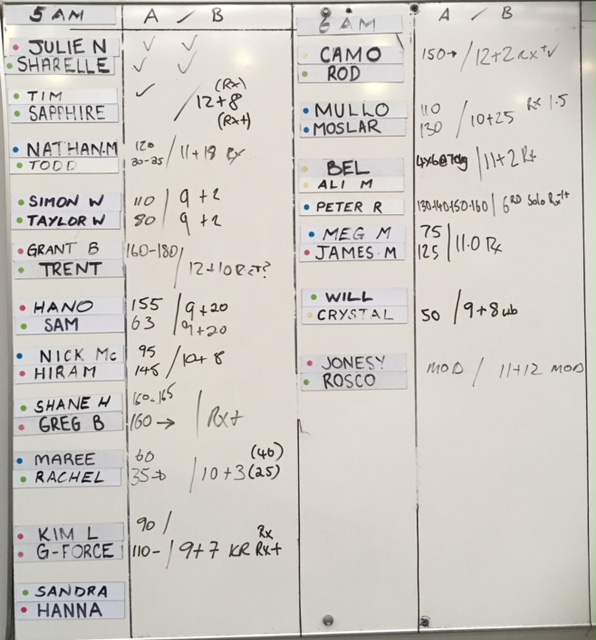 5 AM A / B
JULIE N ✓ ✓
SHARELLE ✓ ✓
TIM ✓ (Rx)
SAPPHIRE / 12+8
(Rx+)
NATHAN.M 120
TODD 30-35 / 11+18 Rx
SIMON W 110 / 9+2
TAYLOR W 80 / 9+2
GRANT B 160-180 /
TRENT / 12+10
HANO 155 / 9+20
SAM 63 / 9+20
NICK Mc 95
HIRAM 145 / 10+8
SHANE H 160-165
GREG B 160→ / Rx+
MAREE 60 (40)
RACHEL 35 / 10+3 (25)
KIM L 90 / Rx
G-FORCE 110- / 9+7 KR Rx+
SANDRA
HANNA
6 AM A / B
CAMO 150→ / 12+2 Rx+
ROD
MULLO 110 Rx 1.5
MOSLAR 130 / 10+25
BEL 4x6@70kg / 11+2 Rx
ALI M
PETER R 130-140-150-160 / 6RD Solo
MEG M 75
JAMES M 125 / 11.0 Rx
WILL
CRYSTAL 50 / 9+8 wb
JONESY MOD / 11+12 MOD
ROSCO